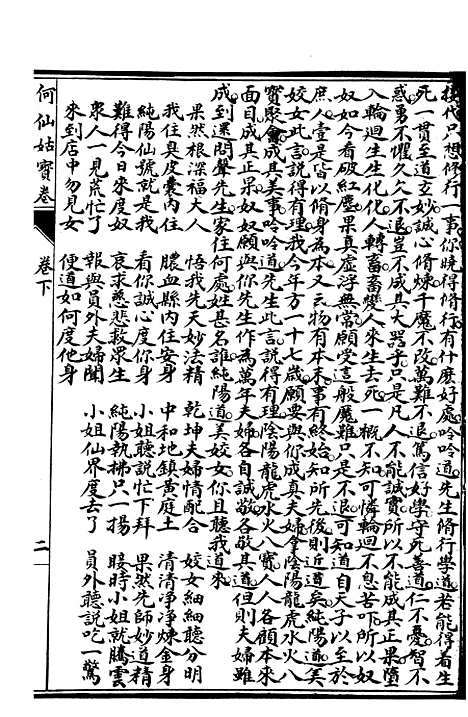 接代只想修行一事你曉得修行有什麼好處吟吟道先生修行學道若能得着生
死一貫至道玄妙誠心脩煉千魔不改萬難不退篤信好學守死善道仁不憂智不
惑勇不懼久久不退豈不成其大器乎只是凡人不能誠實所以不能成其正果墮
入輪迴生生化化人轉畜畜變人來生去死一概不知可憐輪迴不息苦吓所以奴
奴如今看破紅塵果真虛浮無常願受這般魔難只是不退可知道自天子以至於
庶人壹是皆以脩身為本又云物有本末事有終始知所先後則近道矣純陽道美
姣女此言說得有理我今年方一十七歲願要與你成真夫婦拿陰陽龍虎水火八
寶聚會成其美事吟吟道先生此言說得有理陰陽龍虎水火八寶人人各顧本來
面目成其正果奴奴願與你先生作為萬年夫婦各自誠敬各敬其道但則夫婦雖
成到還問聲先生家住何處姓甚名誰純陽道美姣女你且聽我道來
果然根深福大人　悟我先天妙法精　乾坤夫婦情配合　姣女細細聽分明
我住真皮囊內住　膿血縣內住安身　中和地鎮黃庭土　清清淨淨煉金身
純陽仙號就是我　看你誠心度你身　小姐聽說忙下拜　果然先師妙道精
難得今日來度奴　哀求慈悲救眾生　純陽執拂只一揚　睖時小姐就騰雲
衆人一見荒忙了　報與員外夫婦聞　小姐仙界度去了　員外聽說吃一驚
來到店中勿見女　便道如何度他身
何仙姑寶卷
卷下
二